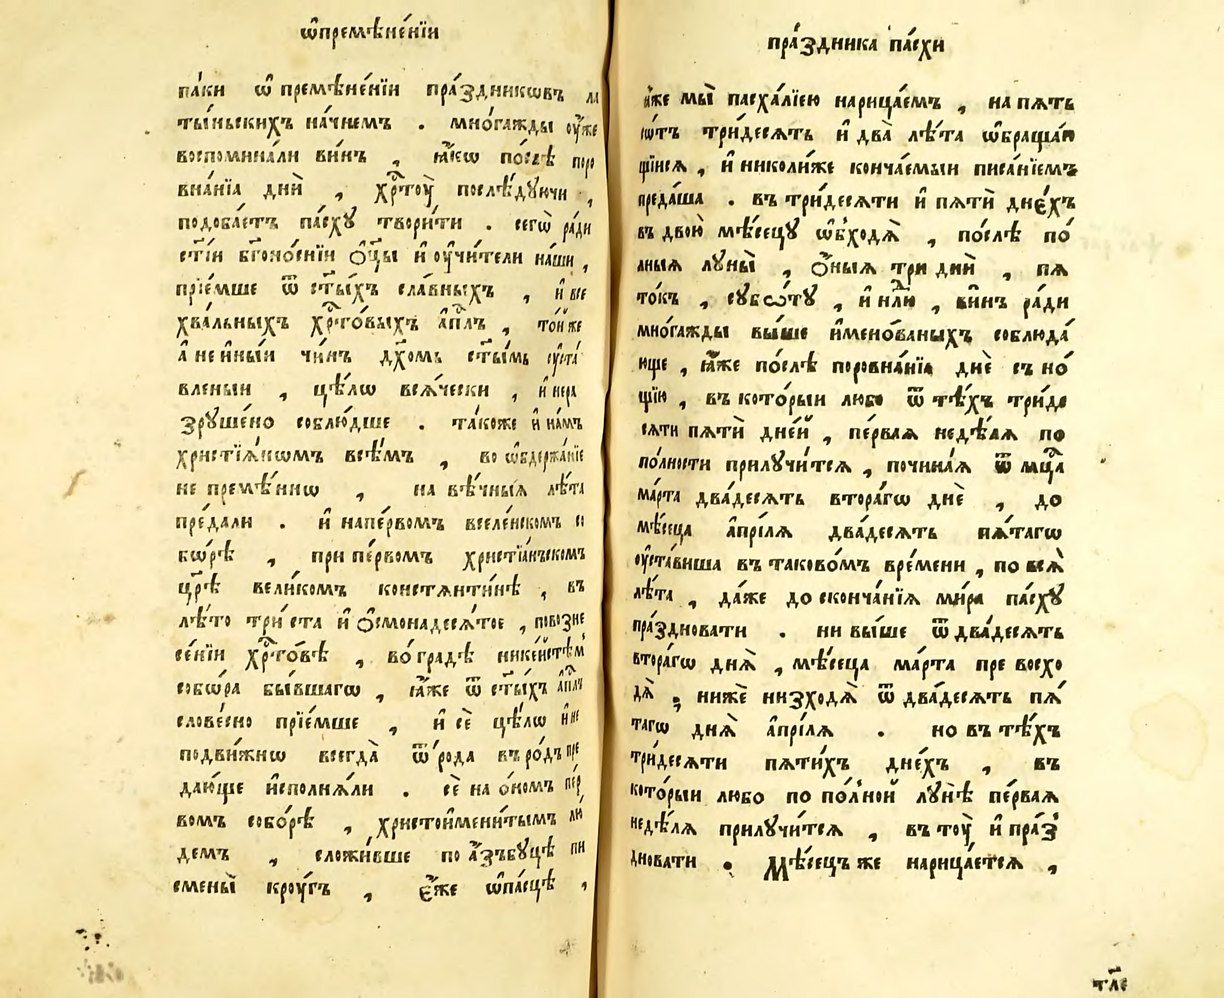 ѡ҆премѣне́нїи
па́ки ѡ҆ премѣне́нїи пра́здникѡвъ ла
ты́ньскихъ на́чнемъ . мно́гажды оу҆́же
воспомина́ли ви́нъ , ꙗ҆́кѡ по́слѣ поро
вна́нїа днѝ , хрⷭ҇тоу̀ послѣ́дуючи ,
подоба́етъ па́сху твори́ти . сегѡ̀ ра́ди
ст҃і́и бг҃оно́снїи ѻ҆ц҃ы и҆ оу҆чи́тели на́ши ,
прїе́мше ѿ ст҃ы́хъ сла́вныхъ , и҆ все
хва́льныхъ хрⷭ҇то́выхъ а҆пⷭ҇лъ , то́йже
а҆ не и҆ны́и чи́нъ дх҃омъ ст҃ы́мъ оу҆ста́
вленыи , цѣ́лѡ вся́чески , и҆ нера
зруше́но соблю́дше . та́коже и҆ на́мъ
христїѧ́нѡмъ всѣ́мъ , во ѡ҆бдержа́нїе
не премѣ́ннѡ , на вѣ́чныѧ лѣ́та
пре́дали . и҆ напе́рвомъ вселе́нскомъ со
бѡ́рѣ , при пе́рвомъ христїа́нъскомъ
цр҃ѣ вели́комъ констѧнти́нѣ , въ
лѣ́то три́ ста и҆ ѻ҆смонадесѧ́тое , по возне
се́нїи хрⷭ҇то́вѣ , во́ градѣ нике́йстѣмъ
собѡ́ра бы́вшагѡ , ꙗ҆́же ѿ ст҃ы́хъ а҆пⷭ҇лъ
слове́сно прїе́мше , и҆ сѐ цѣ́лѡ и҆ не
подви́жнѡ всегда̀ ѿ ро́да въ ро́дъ пре
даю́ще и҆сполнѧ́ли . се́ на о҆́номъ пе́р
вомъ собо́рѣ , христоимени́тымъ лю
демъ , сложи́вше по а҆́зъбуцѣ пи
смены̀ кроу́гъ , є҆́же ѡ҆ па́сцѣ ,
пра́здника па́схи
ꙗ҆́же мы̀ пасха́лїею нарица́емъ , на пѧ́ть
сѡ́тъ три́десѧть и҆ два̀ лѣ́та ѡ҆браща́ю
щїисѧ , и҆ николи́же конча́емыи писа́нїемъ
преда́ша . въ три́десѧти и҆ пѧтѝ дне́хъ
въ двою̀ мѣ́сецу ѡ҆бходѧ̀ , по́слѣ по́
лныѧ луны̀ , ѻ҆́ныѧ три днѝ , пѧ
то́къ , субѡ́ту , и҆ недⷧ҇ю , ви́нъ ра́ди
мно́гажды вы́ше и҆мено́ваныхъ соблюда́
юще , ꙗ҆́же по́слѣ поровна́нїѧ днѐ съ но́
щїю , въ кото́рыи любо ѿ тѣ́хъ три́де
сѧти пѧтѝ дне́й , пе́рваѧ недѣ́лѧ по
по́лности прилучи́тсѧ , почина́ѧ ѿ мцⷭ҇а
ма́рта два́десѧть втора́гѡ днѐ , до
мѣ́сеца а҆прі́лѧ два́десѧть пѧ́тагѡ
оу҆ста́виша въ таково́мъ вре́мени , по всѧ̀
лѣ́та , да́же до сконча́нїѧ ми́ра па́сху
пра́здновати . ни вы́ше ѿ два́десѧть
втора́гѡ днѧ̀ , мѣ́сеца ма́рта превосхо
дѧ̀ , ниже́ низходѧ̀ ѿ два́десѧть пѧ́
тагѡ днѧ̀ а҆прі́лѧ . но въ тѣ́хъ
три́десѧти пѧти́хъ дне́хъ , въ
кото́рыи любо по по́лной лу́нѣ пе́рваѧ
недѣ́лѧ прилучи́тсѧ , въ тоу̀ и҆ пра́з
дновати . Мѣ́сецъ же нарица́етсѧ ,
тл҃є